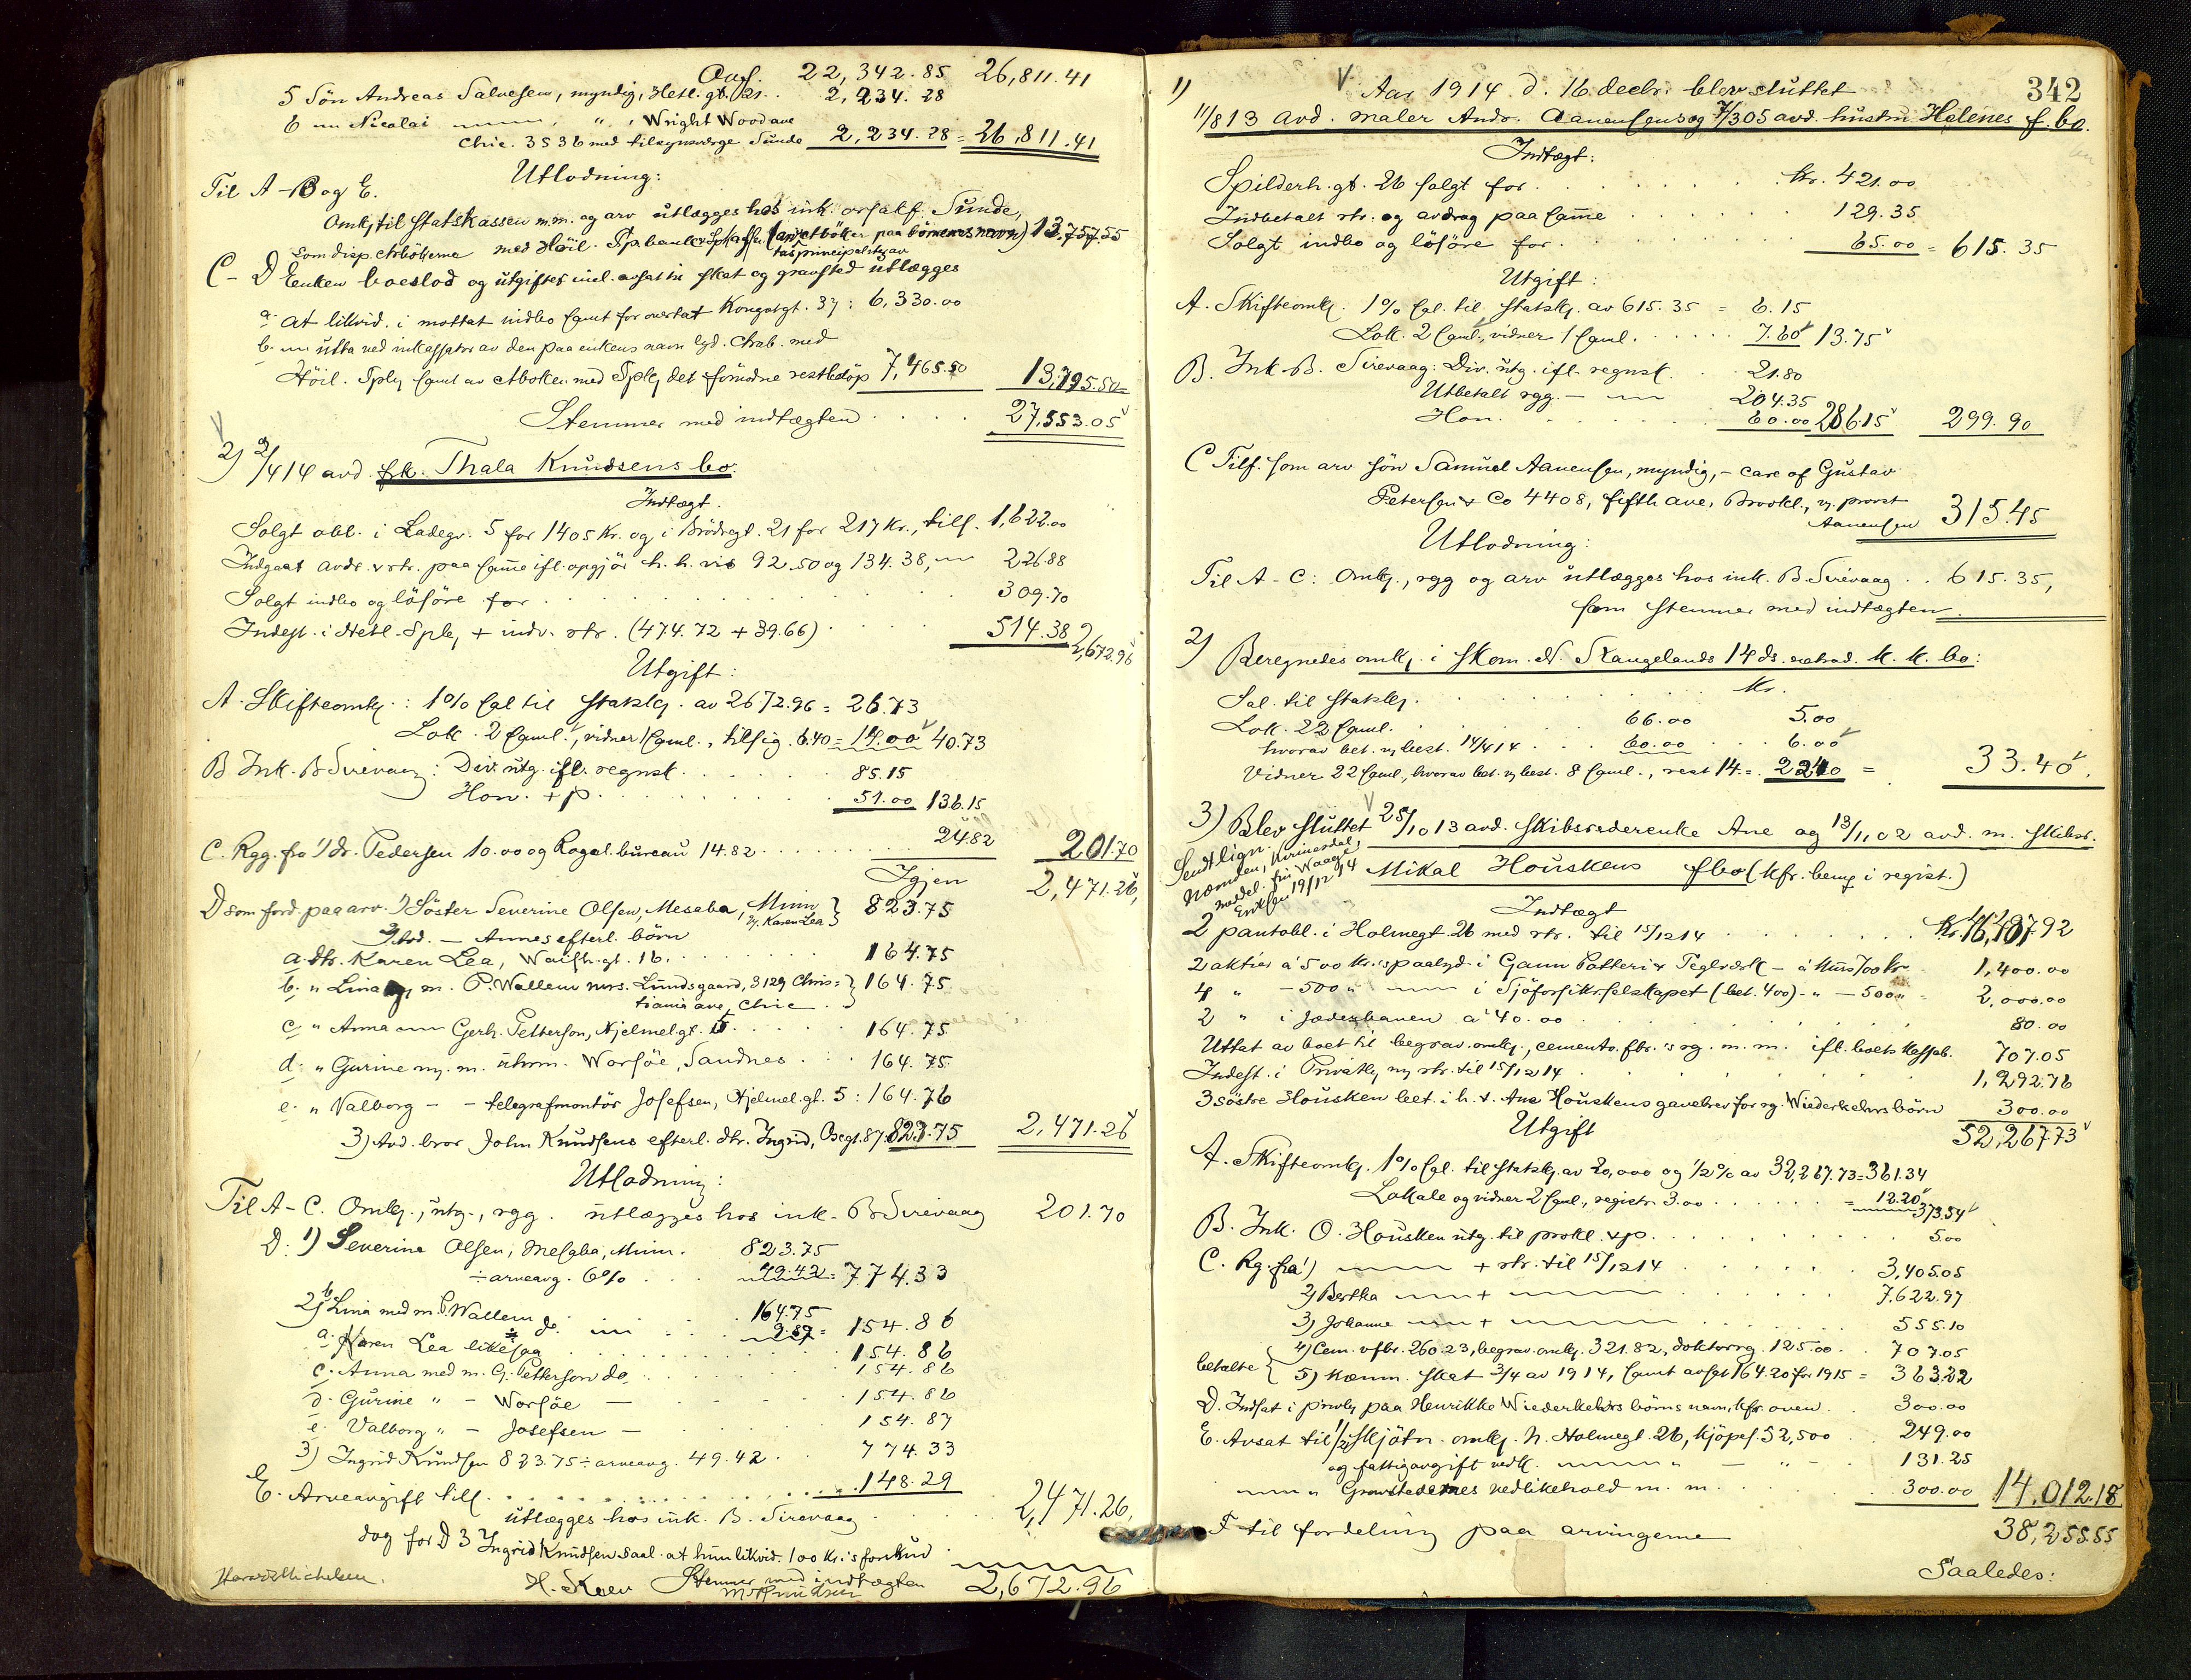 Overf. 22,342.85 26,811.41
5 Sön Andreas Salvesen, myndig, Hetl. gt. 2,234.28
6 " Nicolai " , " , Wright Wood ave
Chic. 3536 med tilsynsværge Sunde 2,234.28 = 26,811.41
Utlodning:
Til A-B og E.
Omk, til statskassen m.m. og arv utlægges hos ink. orsakf. Sunde,
som disp. avböterne med Höil. Spbank paa börnenes navn) 13.757.55
C-D Enken boeslod og utgifter incl. avsat til skat og gravsted utlægges
a. at likvid. i mottat indbo samt for overtat Kongsgt. 37: 6,330.00
b. " utta ved inkassator av den paa enkens navn lyd. med
Höil. Spk, samt av med Spk, det fornödne restbelöp 7,465.50 13,795.50
Stemmer med indtægten 27,553.05
2) 2/4 14 avd. frk. Thala Knudsens bo.
Indtægt.
Solgt obl. i Ladegr. 5 for 1405 Kr. og i Brödregt. 21 for 217 Kr., tils. 1,622.00
Indgaat avdr. & rtr. paa samme ifl. opgjör h. h. vis 92.50 og 134.38, " 226.88
Solgt indbo og lösöre for 309.70
Indest. i Hetl. Spk, + indv. rtr. (474.72 + 39.66) 514.38 2,672.96
Utgift:
A. Skifteomk.: 1% sal til statsk. av 2672.96 = 26.73
Lok. 2 saml., vidner 1 saml., tilsig. 6.40 = 14.00 40.73
B Ink. B Sirevaag: Div. utg. ifl. regnsk. 85.15
Hon. + p. 51.00 136.15
C. Rgg. fra 1) dr. Pedersen 10.00 og Rogal. bureau 14.82 24.82 201.70
Igjen 2,471.26,
D som ford. paa arv. 1) Söster Severine Olsen, Mesaba, Minn } 823.75
v. Karen Lea
2) avd. — Annes efterl. börn
a. dtr. Karen Lea, Waish. gt. 16. 164.75
b. " Lina m. P. Wallem mrs. Lundsgaard, 3129 Chris= } 164.75
tiania ave, Chic.
c. " Anna " Gerh. Petterson, Hjelmel. gt. 5. 164.75
d. " Gurine m. m. uhrm. Worsöe, Sandnes 164.75
e. " Valborg - - telegrafmontör Josefsen, Hjelmel. gt. 5: 164.76
3) Avd. bror John Knudsens efterl. dtr. Ingrid, Bregt. 87. 823.75 2,471.26
Utlodning:
Til A-C. Omk., utg., rgg. utlægges hos ink. B Sirevaag 201.70
D: 1) Severine Olsen, Mesaba, Minn. 823.75
÷ arveavg. 6% 49.42 = 774.33
2) b Lina med m. P. Wallem do. 164.75
9.89 = 154.86
a. Karen Lea likesaa 154.86
c. Anna med m. G. Petterson do. 154.86
d. Gurine " - Worsöe — 154.86
e. Valborg " - Josefsen — 154.87
3) Ingrid Knudsen 823.75 ÷ arveavg. 49.42 774.33
E. Arveavgift tils. 148.29
utlægges hos ink. B. Sirevaag 2,471.26,
dog for D 3 Ingrid Knudsen saal. at hun likvid. 100 kr. is forskud
Stemmer med indtægten 2,672.96
Michelsen. H. Skaar
342
1) Aar 1914 d. 16 decbr. blev sluttet
11/8 13 avd. maler Andr. Aanensens og 7/3 05 avd. hustru Helenes f. bo.
Indtægt:
Spilderh. gt. 26 solgt for Kr. 421.00
Indbetalt rtr. og avdrag paa samme 129.35
Solgt indbo og lösöre for 65.00 = 615.35
Utgift:
A. Skifteomk. 1% sal. til statsk. av 615.35 = 6.15
Lok. 2 saml., vidner 1 saml. 7.60 13.75
B. Ink. B. Sirevaag: Div. utg. ifl. regnsk. 21.80
Utbetalt rgg. — " 204.35
Hon. 60.00 286.15 299.90
C Tilf. som arv sön Samuel Aanensen, myndig, - care of Gustav
Petersen & Co 4408, fifth ave, Brookl., v. provst
Aanensen 315.45
Utlodning:
Til A-C: Omk., rgg og arv utlægges hos ink. B. Sirevaag 615.35,
som stemmer med indtægten.
2) Beregnedes omk. i skom. N. Stangelands 14 ds. K. K. bo:
Kr.
Sal. til statsk. 5.00
Lok. 22 saml. 66.00
hvorav bet. v. best. 14/4 14 60.00 6.00
Vidner 22 saml., hvorav bet. v. best. 8 saml., rest 14 = 22.40 = 33.40
3) Blev sluttet 25/10 13 avd. skibsrederenke Ane og 13/11 02 avd. m. skibsr.
Mikal Houskens fbo (kfr. bem. i regist.)
Sendt lign.
nævnden,
meddel. fru Waage
Eriksen 19/12 14
Indtægt
2 pantobl. i Holmegt. 26 med rtr. til 15/12 14 Kr. 46,487.92
2 aktier à 500 kr. is paalyd. i Gann Potteri & Teglværk - à kurs 700 kr 1,400.00
4 " - 500 " " i Sjöforsikr.selskapet (bet. 400) - " - 500 " = 2,000.00
2 " i Jæderbanen à 40.00 80.00
Uttat av boet til begrav. omk., cementv. fbr. is rg. m. m. ifl. boets kassab. 707.05
Indest. i Privatb, m. rtr. til 15/12 14 1,292.76
3 söstre Housken bet. i h. t. Ane Houskens gavebrev for rg. Wiederkehrs börn 300.00
52,267.73
Utgift
A. Skifteomk. 1% sal. til statsk. av 20,000 og 1/2% av 32,267.73 = 361.34
Lokale og vidner 2 saml., registr. 3.00 = 12.20 373.54
B. Ink. O. Housken utg. til prokl. & p. 5.00
C. Rg. fra 1) " + rtr. til 15/12 14 3,405.05
2) Bertha " + " 7,622.97
3) Johanne " + " 555.10
4) Cem. v fbr. 260.23, begrav. omk. 321.82, doktorrg. 125.00 707.05
betalte { 5) Kæmn. skat 3/4 av 1914, samt avsat 164.20 for 1915 = 363.22
D. Indsat i privb, paa Henrikke Wiederkehrs börns navn, kfr. oven 300.00
E. Avsat til 1/2 skjötn. omk. v. Holmegt. 26, kjöpes. 52,500 249.00
og fattigavgift vedk. " 131.25
" " Gravstedernes vedlikehold m. m. 300.00 14,012.18
F til fordeling paa arvingerne 38,255.55
Saaledes: